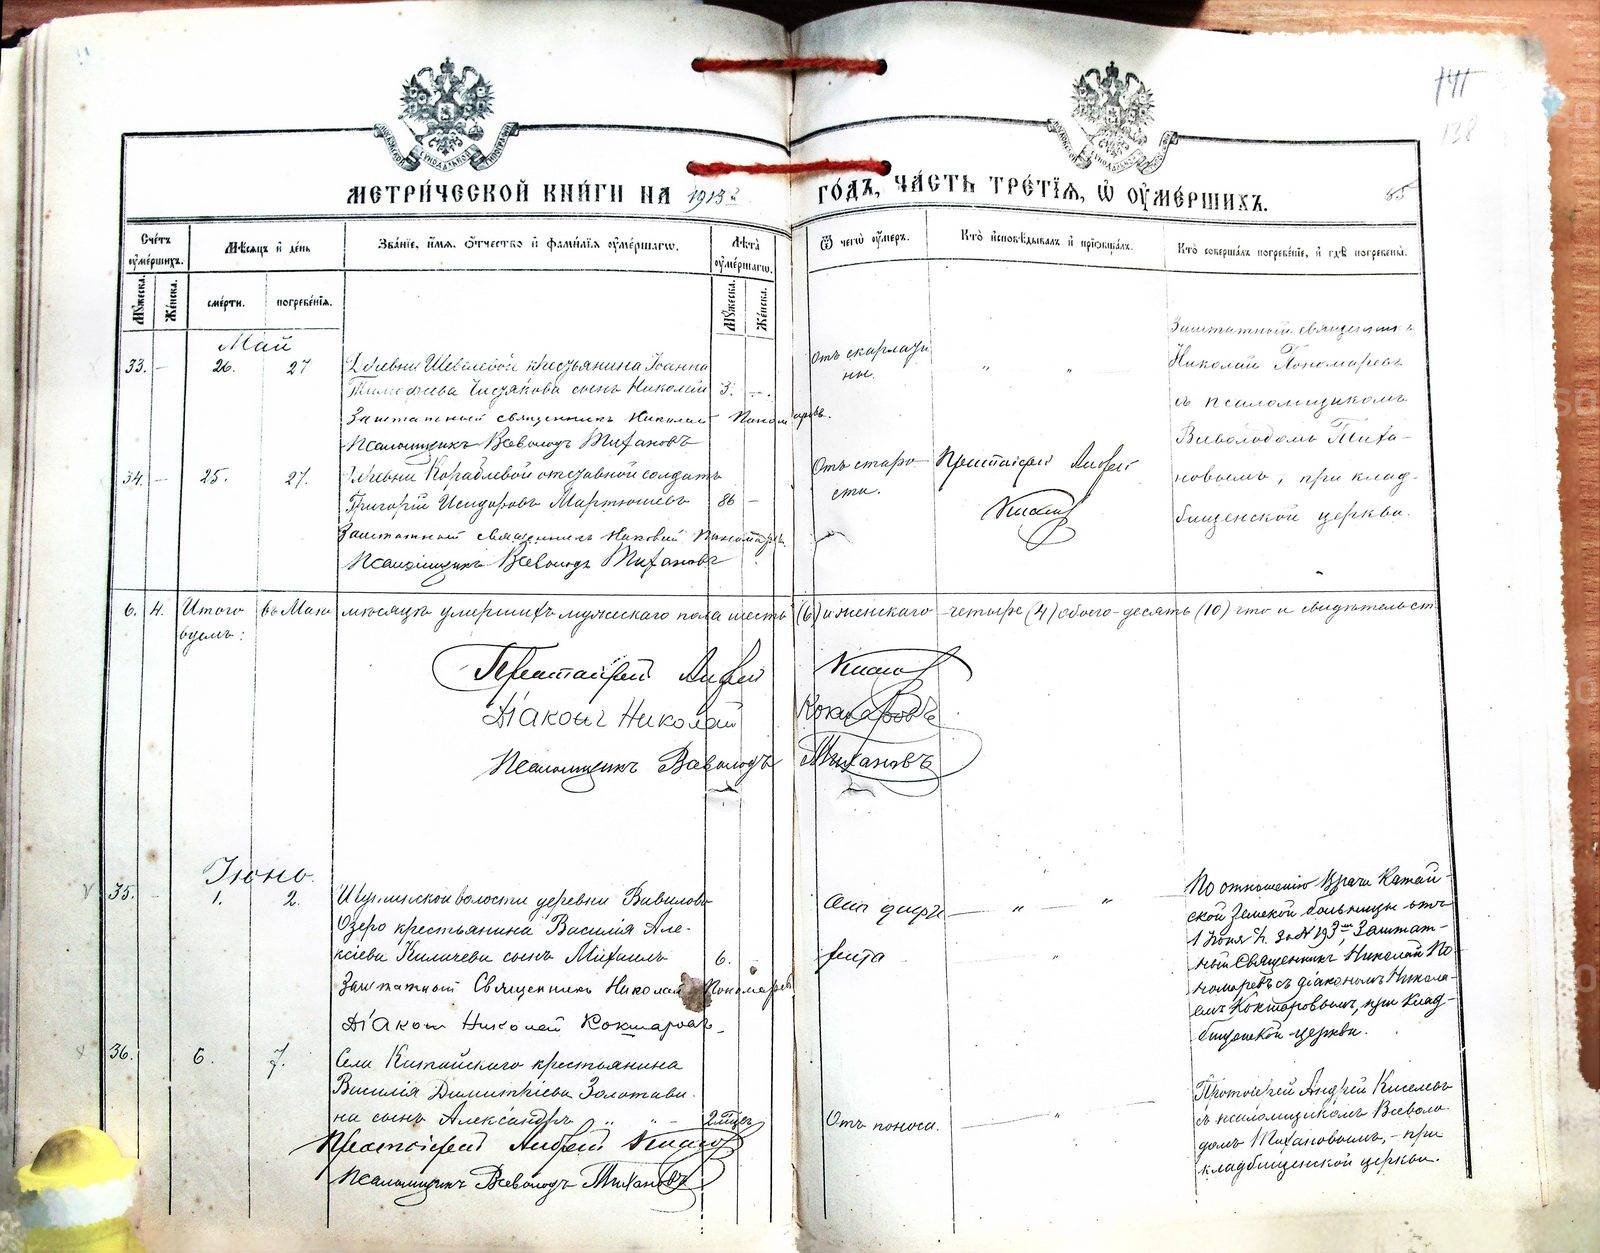 141
138
МОСКОВСКОЙ СѴНОДАЛЬНОЙ ТИПОГРАФІИ
МЕТРИ́ЧЕСКОЙ КНИ́ГИ НА 1913 й ГО́ДЪ, ЧА́СТЬ ТРЕ́ТІѦ, Ѡ҆ ОУ҆МЕ́РШИХЪ.
55
Сче́тъ оу҆ме́ршихъ.
Мѣ́сяцъ и҆ де́нь
Зва́ніе, и҆́мя, ѻ҆́тчество и҆ фамі́лія оу҆ме́ршагѡ.
Лѣ́та оу҆ме́ршагѡ.
Ѿ чегѡ̀ оу҆́меръ.
Кто̀ и҆сповѣ́дывалъ и҆ пріѡбща́лъ.
Кто̀ соверша́лъ погребе́ніе, и҆ гдѣ̀ погребены̀.
Му́жеска. Же́нска. сме́рти. погребе́нія. Му́жеска. Же́нска.
Май
33. – 26. 27
Деревни Шевелевой крестьянина Іоанна
Тимофеева Чистякова сынъ Николай 3. –
Заштатный священникъ Николай Пономаревъ.
Псаломщикъ Всеволодъ Тихановъ
Отъ скарлати
ны.
" "
Заштатный священникъ
Николай Пономаревъ
съ псаломщикомъ
Всеволодомъ Тиха-
новымъ, при клад-
бищенской церкви.
34. – 25. 27.
Деревни Кораблевой отставной солдатъ
Григорій Исидоровъ Мартюшевъ 86 –
Заштатный священникъ Николай Пономаревъ
Псаломщикъ Всеволодъ Тихановъ
Отъ старо-
сти.
Протоіерей Андрей
Киселевъ
6. 4. Итого въ Маѣ мѣсяцѣ умершихъ мужескаго пола шесть (6) и женскаго четыре (4) обоего десять (10) что и свидѣтельст
вуемъ:
Протоіерей Андрей Киселевъ
Діаконъ Николай Кокшаровъ
Псаломщикъ Всеволодъ Тихановъ
Іюнь.
35. – 1. 2.
волости деревни Вавилова
Озеро крестьянина Василія Але-
ксіева сынъ Михаилъ 6. –
Заштатный Священникъ Николай Пономаревъ
Діаконъ Николай Кокшаровъ
Отъ дифте
рита
" "
По отношенію Врача Катай-
ской Земской больницы отъ
1 Іюня с/г. за № 193 м, Заштат-
ный Священникъ Николай По-
номаревъ съ діакономъ Никола-
емъ Кокшаровымъ, при клад-
бищенской церкви.
36. 6. 7.
Села Катайскаго крестьянина
Василія Димитріева Золотави-
на сынъ Александръ " " 2 мѣс.
Протоіерей Андрей Киселевъ
Псаломщикъ Всеволодъ Тихановъ
Отъ поноса.
"
Протоіерей Андрей Киселевъ
съ псаломщикомъ Всеволо-
домъ Тихановымъ, - при
кладбищенской церкви.